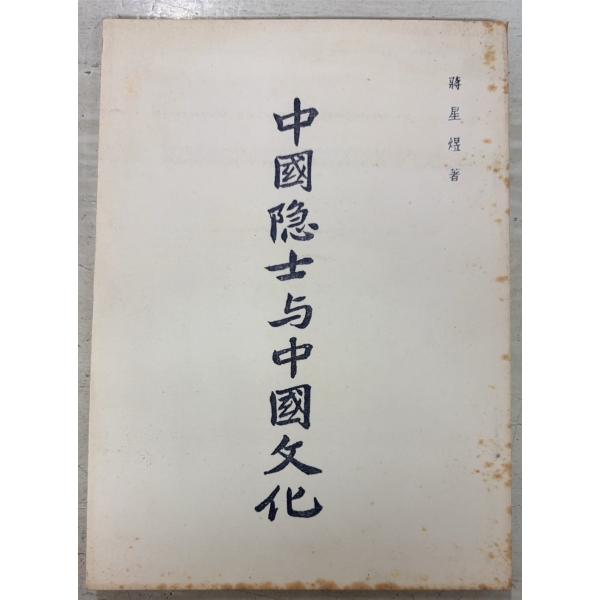 蔣星煜著
中國隐士与中國文化